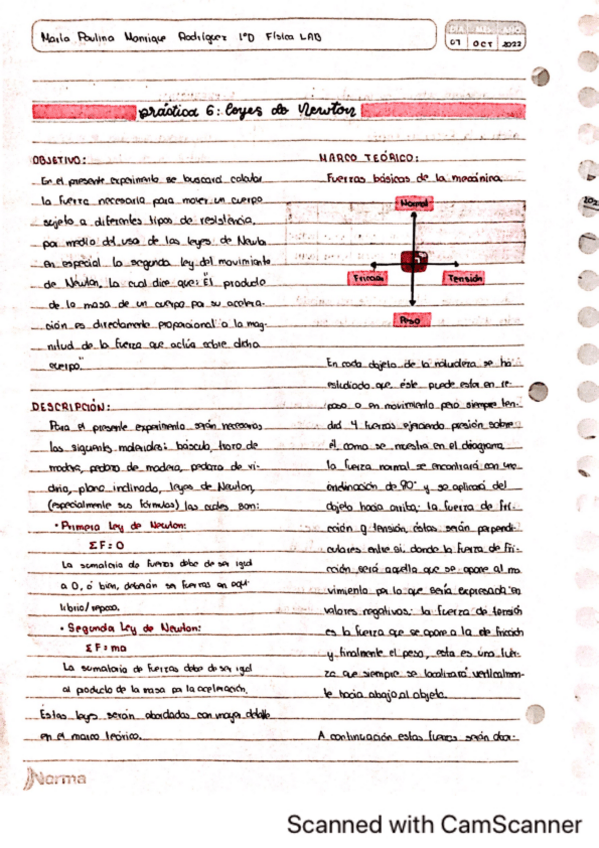 María Paulina Manrique Rodríguez 1°D Física LAB
DIA MES AÑO
07 OCT 2022
práctica 6: leyes de Newton
OBJETIVO:
En el presente experimento se buscará calcular
la fuerza necesaria para mover un cuerpo
sujeto a diferentes tipos de resistencia,
por medio del uso de las leyes de Newton
en especial la segunda ley del movimiento
de Newton, la cual dice que: "El producto
de la masa de un cuerpo por su acelera-
ción es directamente proporcional a la mag-
nitud de la fuerza que actúa sobre dicho
cuerpo."
DESCRIPCIÓN:
Para el presente experimento serán necesarios
los siguients materiales: báscula, trozo de
madera, pedazo de madera, pedazo de vi-
drio, plano inclinado, leyes de Newton,
(especialmente sus fórmulas) las cuales son:
• Primera Ley de Newton:
ΣF=0
La sumatoria de fuerzas debe de ser igual
a 0, o bien, deberán ser fuerzas en equi-
librio/reposo.
• Segunda Ley de Newton:
ΣF=ma
La sumatoria de fuerzas debe de ser igual
al producto de la masa por la aceleración.
Estas leyes serán abordadas con mayor detalle
en el marco teórico.
MARCO TEÓRICO:
Fuerzas básicas de la mecánica
Normal
Fricción
Tensión
Peso
En cada objeto de la naturaleza se ha
estudiado que éste puede estar en re-
poso o en movimiento pero siempre ten-
drá 4 fuerzas ejerciendo presión sobre
él como se muestra en el diagrama
la fuerza normal se encontrará con una
inclinación de 90° y se aplicará del
objeto hacia arriba; la fuerza de fri-
cción y tensión, éstas serán perpendi-
culares entre sí, donde la fuerza de fri-
cción será aquella que se opone al mo
vimiento por lo que sería expresada en
valores negativos; la fuerza de tensión
es la fuerza que se opone a la de fricción
y finalmente el peso, esta es una fuer-
za que siempre se localizará verticalmen-
te hacia abajo al objeto.
A continuación estas fuerzas serán des-
Norma
Scanned with CamScanner